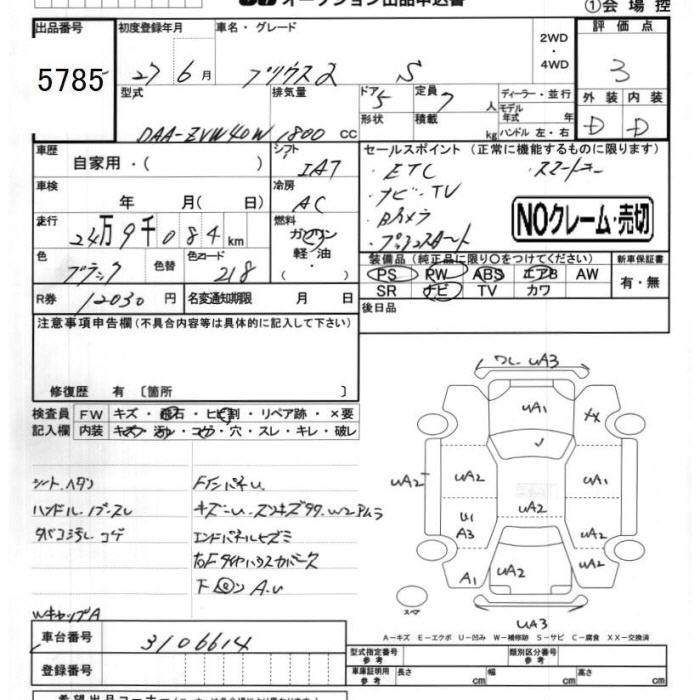 オークション出品申込書
①会場控
出品番号 初度登録年月 車名・グレード 2WD・4WD 評価点
5785 27 6月 プリウスα S 3
型式 排気量 ドア 5 定員 7人 ディーラー・並行 外装 内装
形状 積載 kg モデル年式 年 ハンドル 左・右
DAA-ZVW40W 1800cc D D
車歴 自家用・( ) シフト IAT セールスポイント (正常に機能するものに限ります)
・ETC ・スマートキー
車検 年 月(日) 冷房 AC ・ナビ・TV
・Bカメラ NOクレーム・売切
走行 24万9千084km 燃料 ガソリン・軽油・( ) ・プッシュスタート
色 ブラック 色替 色コード 218 装備品 (純正品に限り○をつけてください) 新車保証書
PS PW ABS エアB AW 有・無
R券 12030円 名変通知期限 月 日 SR ナビ TV カワ
注意事項申告欄(不具合内容等は具体的に記入して下さい) 後日品
修復歴 有〔箇所 〕
検査員記入欄 FW キズ・飛石・ヒビ割・リペア跡・×要
内装 キズ・汚・コゲ・穴・スレ・キレ・破レ
ワレ UA3
UA1 XX
シート ヘタシ
ハンドル・ノブスレ
タバコ汚レ コゲ
キズ・U
エンドパネルヒズミ
右Fタイヤハウスカバー欠
UA2 UA2 UA1
U1 A3 UA2
A1 UA2 UA2
スペア
UA3
WキャップA
A-キズ E-エクボ U-凹み W-補修跡 S-サビ C-腐食 XX-交換済
車台番号 3106614
型式指定番号 参考 類別区分番号 参考
登録番号
車庫証明用 参考 長さ cm 幅 cm 高さ cm
希望出品コーナー